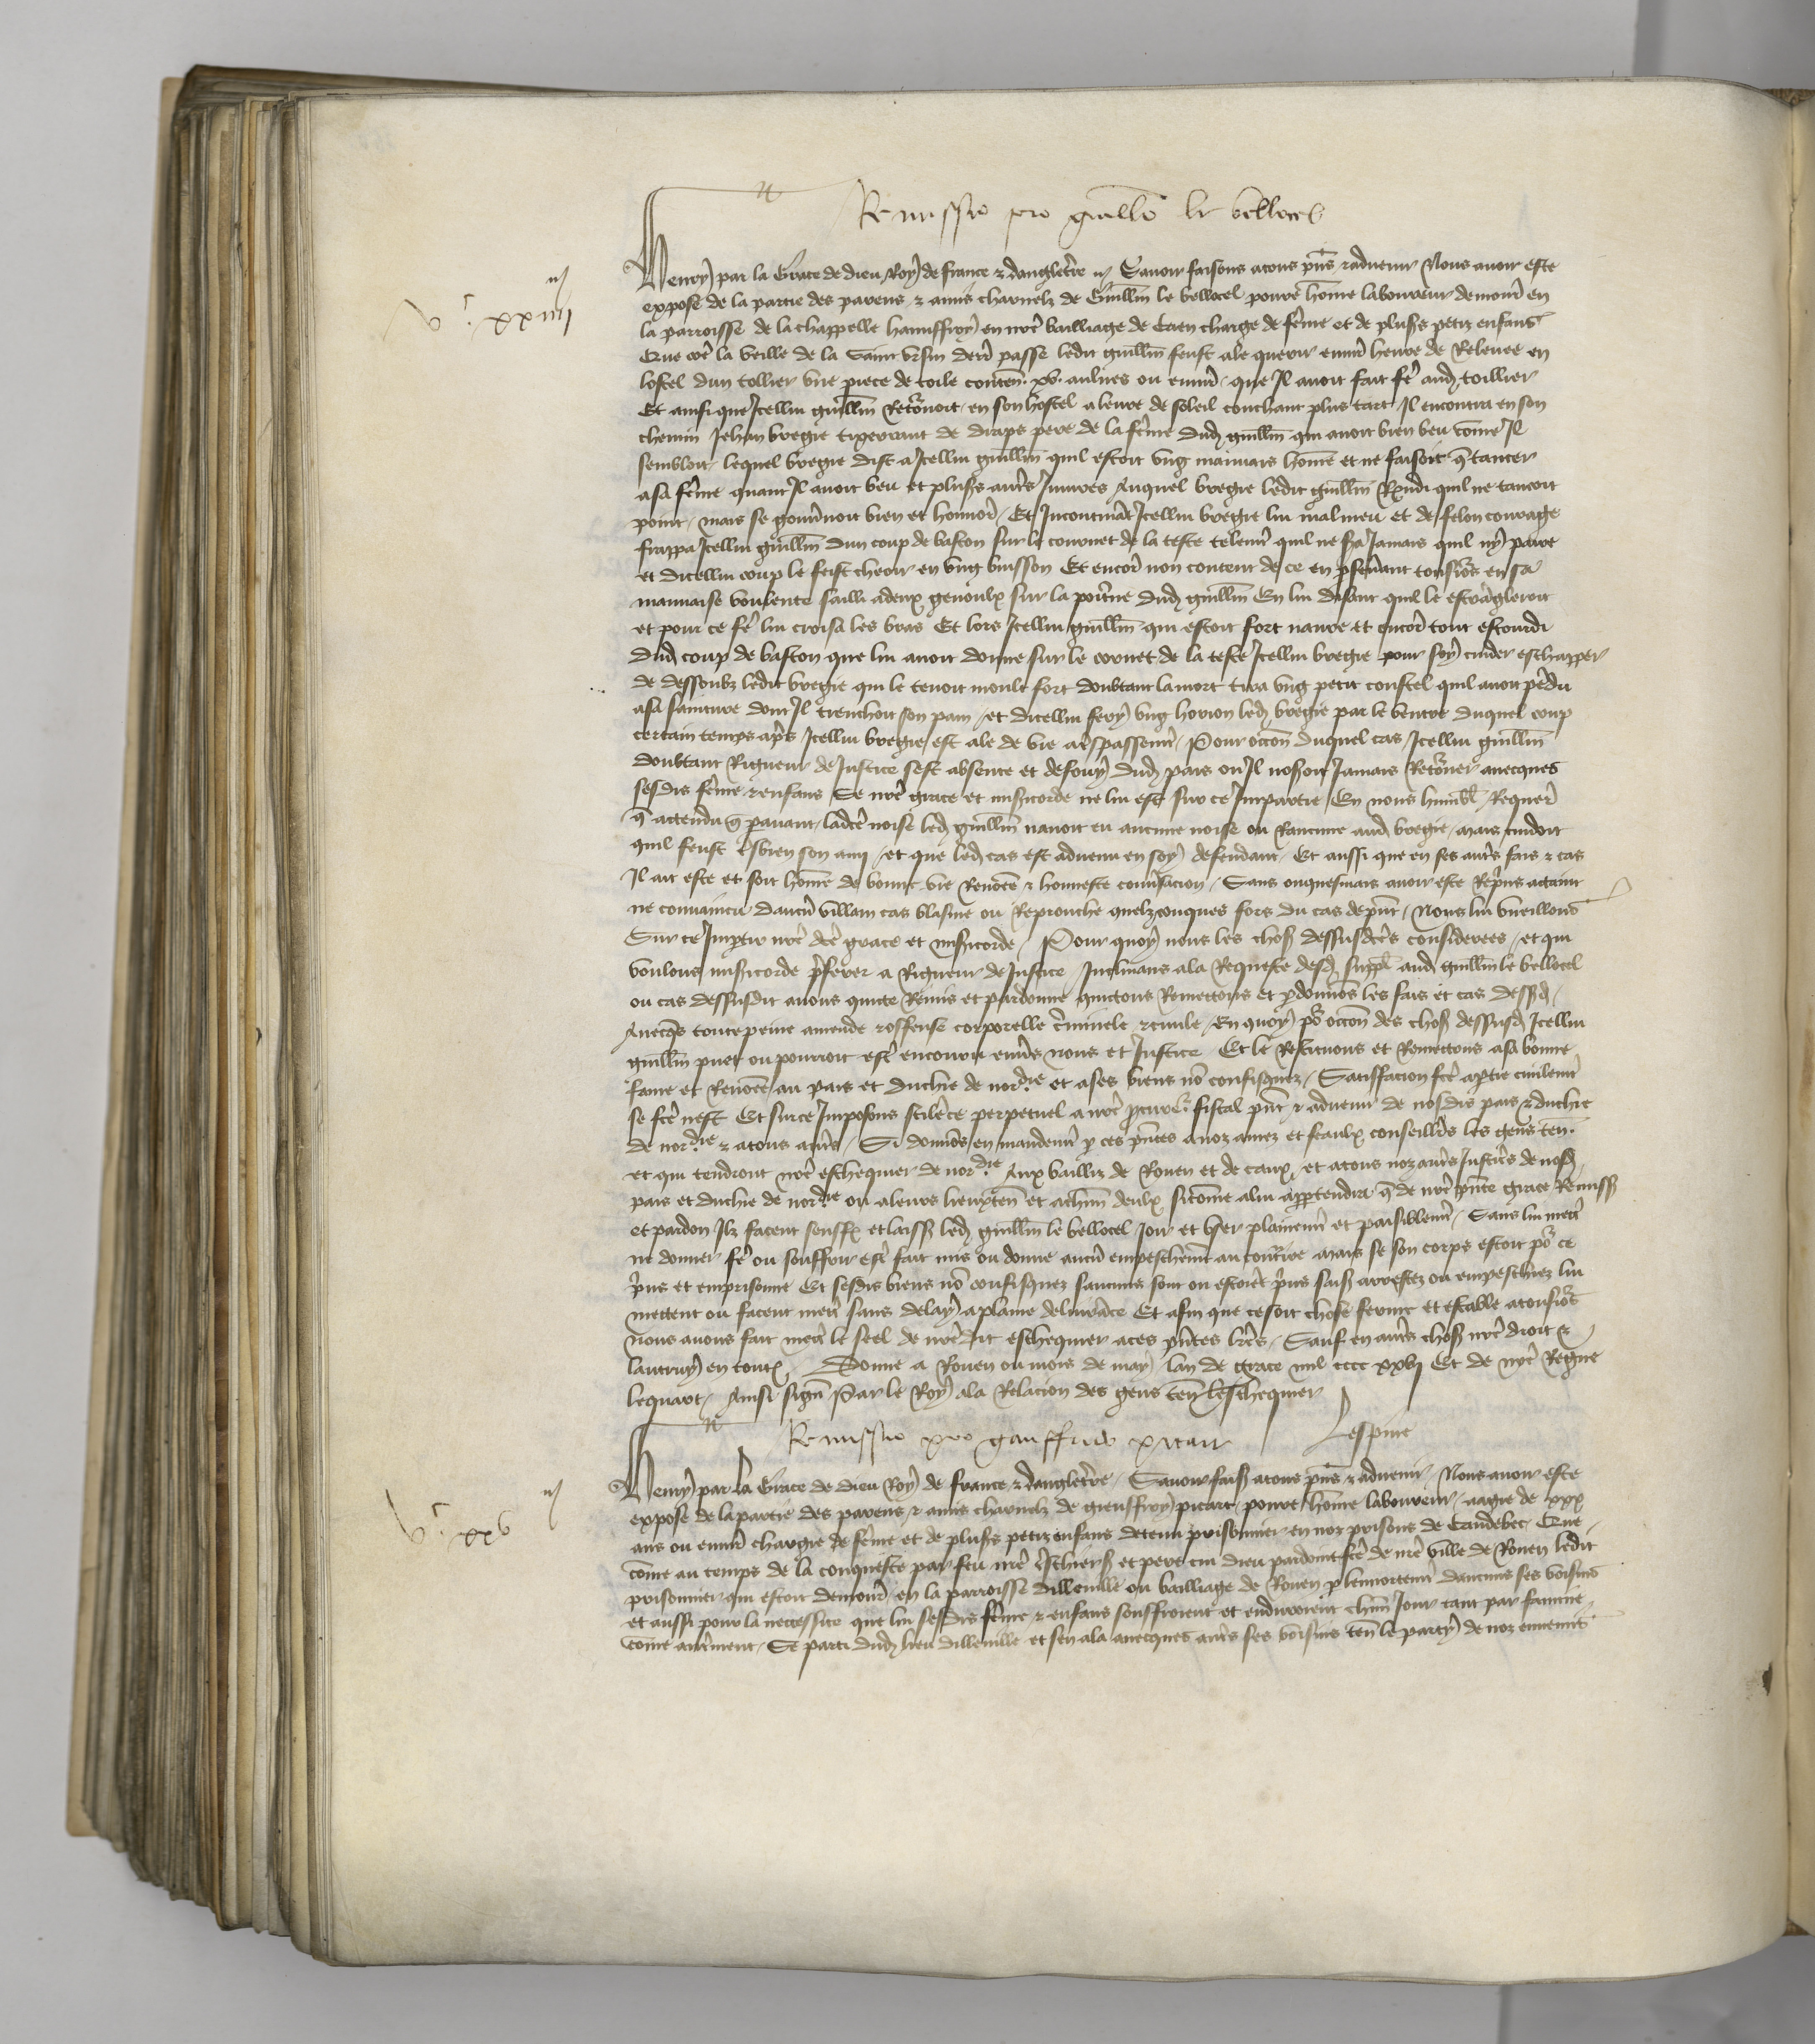 Remissio pro guillo le bellocel
Henry par la Grace de dieu Roy de france & dangleterre Savoir faisons a tous pns & advenir Nous avoir este
expose de la partie des parens & amis charnelz de Guillm le bellocel povre home laboureur demour en
la parroisse de la chappelle hainffroy en nre bailliage de Caen charge de feme et de plus petiz enfans
Que vers la veille de la saint ursin derr passe ledit guillm feust ale querir envir heure de Relevee en
lostel dun tellier une piece de toile conten xv aulnes ou envir que Il avoit fait fe aud toillier
Et ainsi que Icellui guillm Retornoit en son hostel a leure de soleil couchant plus tart Il encontra en son
chemin Jehan bregie tixerrant de draps pere de la feme dud guillm qui avoit bien beu come Il
sembloit lequel bregie dist a Icellui guillm quil estoit ung mauvais home et ne faisoit q tancer
a sa feme quant Il avoit beu et plus autrs Injures Auquel bregie ledit guillm Rendi quil ne tancoit
point mais se gouvnoit bien et honnor Et Incontinat Icellui bregie lui mal meu et de felon courage
frappa Icellui guillm dun coup de baston sur le couronet de la teste telemt quil ne fu Jamais quil ny paire
et dicellui coup le feist cheoir en ung buisson Et encor non content de ce en psevant tousios en sa
mauvaise voulente sailli a deux genoulx sur la poitrine dud guillm En lui disant quil le estragleroit
et pour ce fe lui croisa les bras Et lors Icellui guillm qui estoit fort navre et encor tout estourdi
dud coup de baston que lui avoit donne sur le cornet de la teste Icellui bregie pour soy cuider eschapper
de dessoubz ledit bregie qui le tenoit moult fort doubtant la mort tira ung petit coustel quil avoit pedu
a sa sainture dont Il trenchoit son pain et dicellui fery ung horion led bregie par le ventre duquel coup
certain temps aps Icellui bregie est ale de vie a tspassemt Pour occon duquel cas Icellui guillm
doubtant Rigueur de Justice sest absente et defouy dud pais ou Il noseroit Jamais Retorner avecques
sesdis feme & enfans Se nre grace et misicorde ne lui est sur ce Impartie En nous humbl Requer
q attendu q paravant ladce noise led guillm navoit eu aucune noise ou Rancune aud bregie mais cuidoit
quil feust tsbien son ami et que led cas est advenu en soy defendant Et aussi que en ses autrs fais & cas
Il ait este et soit home de bonne vie Renomee & honneste convsacion Sans onquesmais avoir este Repns attaint
ne convaincu daucun villain cas blasme ou Reprouche quelzconques fors du cas de pnt Nous lui vueillons
Sur ce Imptir nre dce grace et misicorde Pour quoy nous les chos dessusdces considerees et qui
voulons misicorde pferer a Rigueur de Justice Inclinans a la Requeste desd suppl aud guillm le bellocel
ou cas dessusdit avons quicte Remis et pardonne quictons Remettons et pdonnos les fais et cas dessusd
Avecqs toute peine amende & offense corporelle criminele & civile En quoy po occon des chos dessusd Icellui
guillm puet ou pourroit est encouru envers nous et Justice Et le Restituons et Remettons a sa bonne
fame et Renomee au pais et duchie de nordie et a ses biens no confisquez Satisfacion fce a ptie civilemt
se fce nest Et sur ce Imposons silece perpetuel a nre pcureur fiscal pnt & advenir de nosdis pais & duchie
de nordie & a tous autrs Si donnos en mandemt p ces pntes a noz amez et feaulx conseillrs les gens ten
et qui tendront nre eschequier de nordie Aux bailliz de Rouen et de Caux et a tous noz autrs Justicrs de nosd
pais et duchie de nordie ou a leurs lieuxten et a chun deulx sicome a lui apptendra q de nre pnte grace Remiss
et pardon Ilz facent souffr et laiss led guillm le bellocel Joir et user plainemt et paisiblemt Sans lui mett
ne donner fe ou souffrir est fait mis ou donne aucun empeschemt au contire mais se son corps estoit po ce
prins et emprisonne Et sesdis biens no confisquez saucuns sont ou estoiet prins saisiz arrestez ou empeschiez lui
mettent ou facent mett sans delay a plaine delivrace Et afin que ce soit chose ferme et estable a tousios
Nous avons fait mett le seel de nredit eschequier a ces pntes lres Sauf en autrs chos nre droit &
lautruy en tout Donne a Rouen ou mois de may lan de grace mil cccc xxvi Et de nre Regne
le quart Ainsi signe Par le Roy a la Relacion des gens ten leschequier
Lespine
Remissio pro gauffrido picart
Henry par la Grace de dieu Roy de france & dangleterre Savoir fais a tous pns & advenir Nous avoir este
expose de la partie des parens & amis charnelz de gieuffroy picart povre home laboureur aagie de xxx
ans ou envir chargie de feme et de plus petiz enfans detenu prisonnier en noz prisons de Caudebec Que
come au temps de la conqueste par feu nre tschiers et pere cui dieu pardoint fce de nre ville de Rouen ledit
prisonnier qui estoit demour en la parroisse dilleville ou bailliage de Rouen p lennortemt daucuns ses voisins
et aussi pour la neccessite que lui sesdis feme & enfans souffroient et enduroient chun Jour tant par famine
come autrment Se parti dud lieu dilleville et sen ala avecques autrs ses voisins ten le party de noz ennemis
vc xxiiii
vc xxv